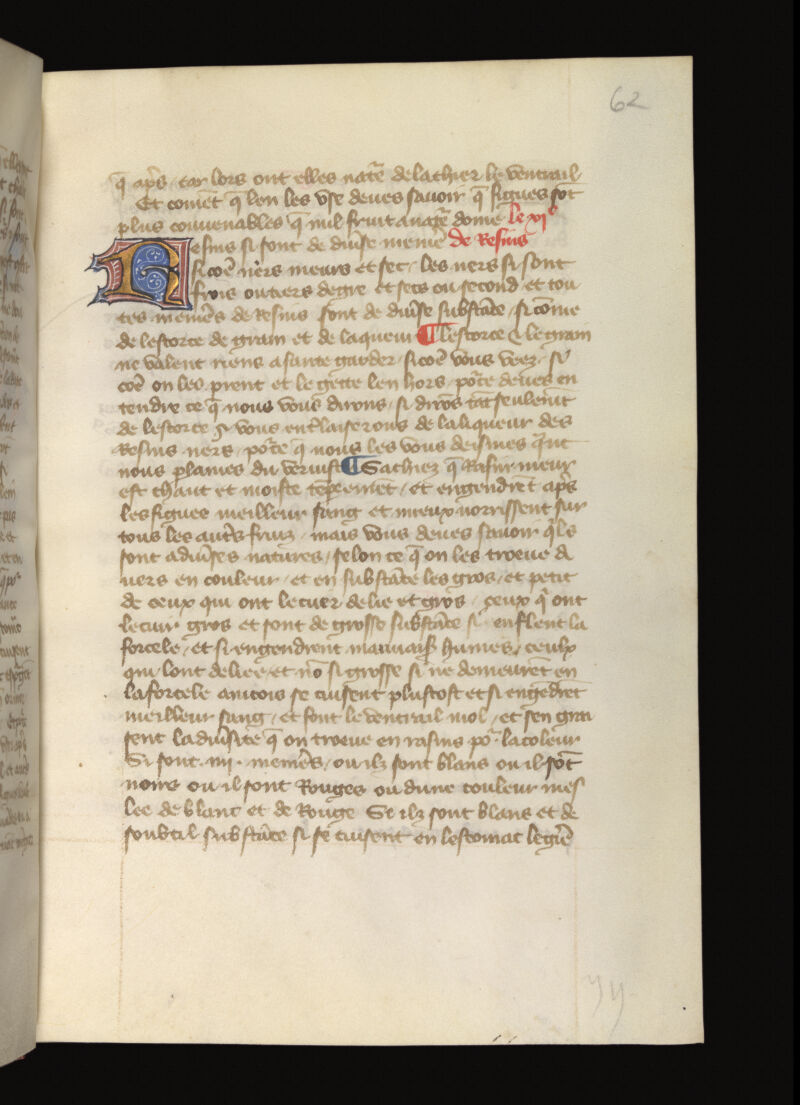 62
q̄ ap̃s / car lors ont elles nat̃e delachier le ventrail
Et comēt q̄ len les vse deues sauoir q̄ figues sōt
plus conuenables q̄ nul fruit a nat̃e dome le xi^e
Resins si sont de diu̾se meniē de Resins
si cōe vers meurs et sec / les vers si sont
frois ou tiers degre et secs ou second et tou
tes meniēs de resins sont de diu̾se substāce / si cōme
de lescorce de grain et de laqueur ¶ Lescorce & le grain
ne valent riens a sante garder / si cōe vous veez / si
cōe on les prent et le gette len hors / por̄ce deues en
tendre ce q̄ nous vous dirons / si dirōs tāt seulemt̄
de lescorce & vous ent̾laiserons de la liqueur des
Resins vers / por̄ce q̄ nous les vous deismes q̄nt
nous plames du veriust ¶ Sachiez q̄ Rasin meur
est chaut et moiste tēp̃eemēt / et engendrēt ap̃s
les figues meilleur sang et mieux norrissent sur
tous les aut̃s fruiz / mais vous deues sauoir q̄ls
sont a diu̾ses natures / selon ce q̄ on les troeue di
uers en couleur / et en substāce les gros / et petit
de ceux qui ont le cuer delie et gros / ceux q̄ ont
le cuir gros et sont de grosse substāce si enflent la
forcele / et si engendrent mauuaises humes / ceulx
qui lont deliee et nō si grosse si ne demeurēt en
la forcele aincois se cuisent plustost et si engēdrēt
meilleur sang / et font le ventrail mol / et sen gras
sent la diu̾site q̄ on troeue en rasins por̄ la coleur
Si sont .iiii. meniēs / ou ilz sont blans ou il sōt
noirs ou il sont Rouges ou dune couleur mes
lee de blanc et de Rouge Se ilz sont blans et de
soubtil substāce si se cuisent en lestomac legiē